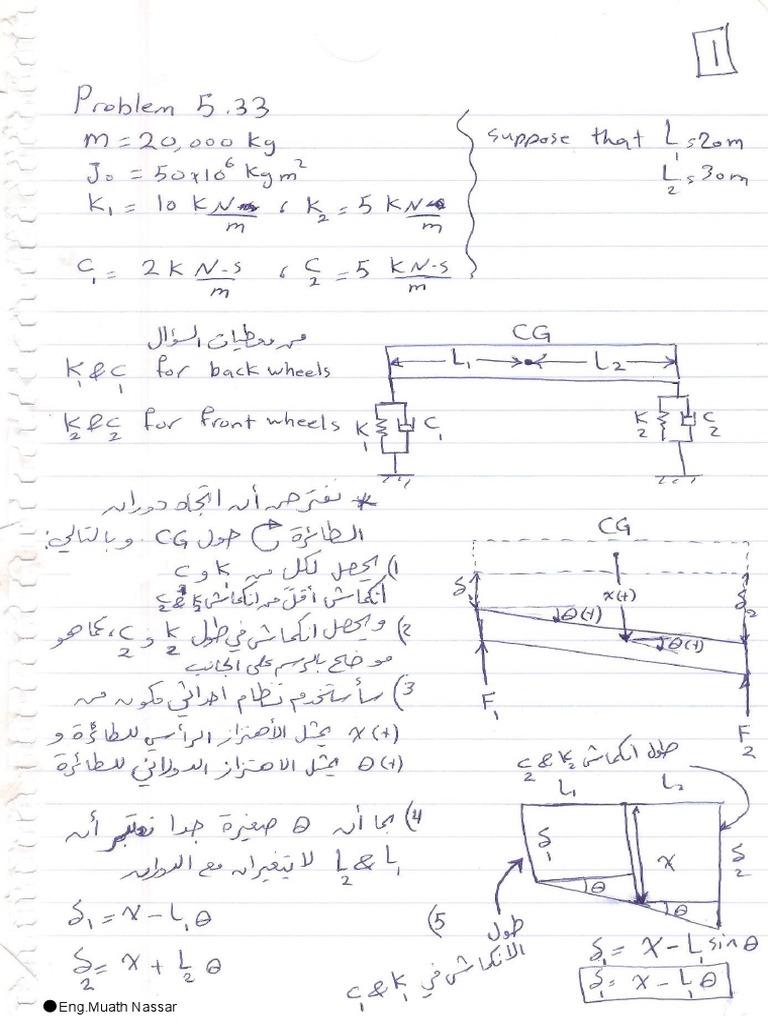 1
Problem 5.33
m = 20,000 kg
J₀ = 50×10⁶ kg m²
K₁ = 10 KN/m ، K₂ = 5 KN/m
C₁ = 2 K N-s/m ، C₂ = 5 KN-s/m
suppose that L₁ = 20m
L₂ = 30m
من معطيات السؤال
K₁ & C₁ for back wheels
K₂ & C₂ for front wheels
CG
L₁ L₂
K₁ C₁ K₂ C₂
* نفترض أن اتجاه دوران
الطائرة حول CG. وبالتالي:
1) يحصل لكل من K و C
انكماش أقل من انكماش K₂ & C₂
2) ويحصل انكماش في طول K₂ و C₂، كما هو
موضح بالرسم على الجانب
3) سأستخدم نظام احداثي مكون من
x(t) يمثل الأهتزاز الرأسي للطائرة و
θ(t) يمثل الاهتزاز الدوراني للطائرة
CG
δ₁ x(t) δ₂
θ(t) θ(t)
F₁ F₂
4) بما أن θ صغيرة جدا نعتبر أن
L₁ & L₂ لا يتغيران مع الدوران
δ₁ = x - L₁θ
δ₂ = x + L₂ θ
طول انكماش C₂ & K₂
L₁ L₂
δ₁ x δ₂
θ θ
5)
طول
الانكماش في K₁ & C₁
δ₁ = x - L₁ sin θ
δ₁ = x - L₁θ
Eng.Muath Nassar